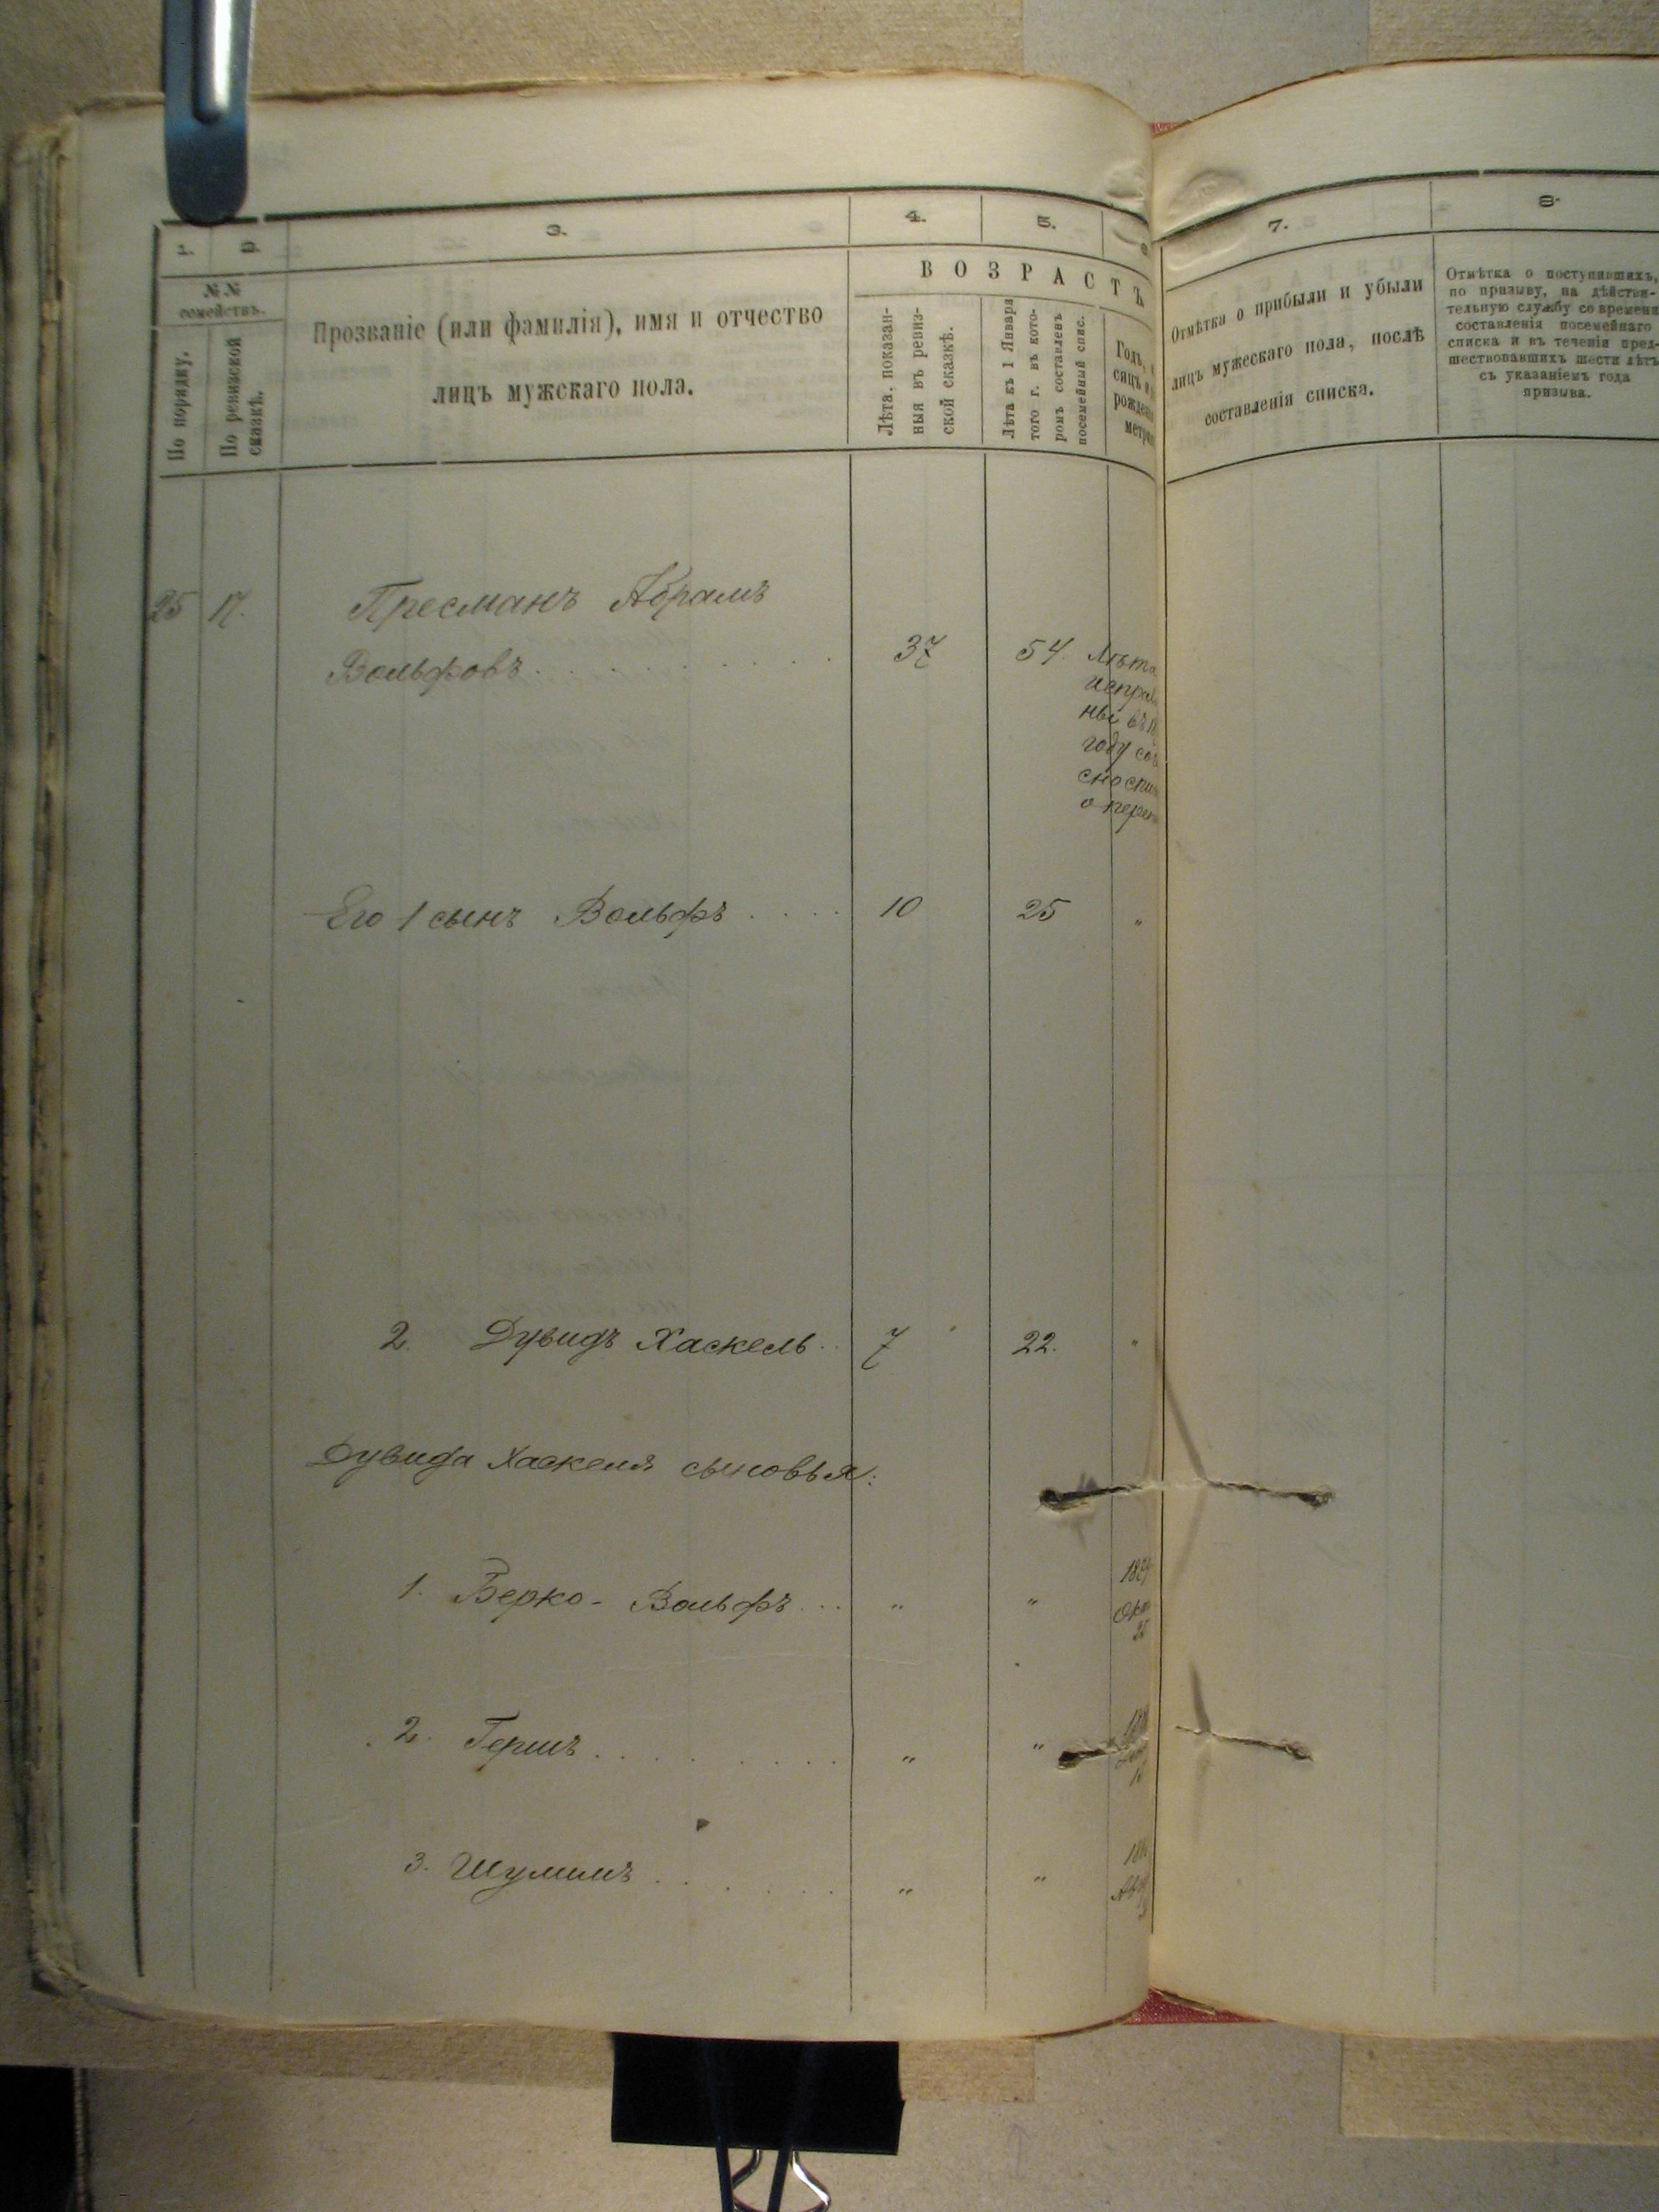 1.
2.
3.
4.
5.
№№ семействъ.
По порядку.
По ревизской сказкѣ.
Прозваніе (или фамилія), имя и отчество
лицъ мужскаго пола.
ВОЗРАСТЪ
Лѣта, показан-
ныя въ ревиз-
ской сказкѣ.
Лѣта къ 1 Января
того г. въ кото-
ромъ составленъ
посемейный спис.
Годъ,
7.
8.
Отмѣтка о прибыли и убыли
лицъ мужескаго пола, послѣ
составленія списка.
Отмѣтка о поступившихъ,
по призыву, на дѣйстви-
тельную службу со времени
составленія посемейнаго
списка и въ теченія пред-
шествовавшихъ шести лѣтъ
съ указаніемъ года
призыва.
25 17. Пресманъ Абрамъ
Вольфовъ 37 54 Лѣта
ны въ
году
Его 1 сынъ Вольфъ 10 25 "
2. Дувидъ Хаскель 7 22. "
Дувида Хаскеля сыновья:
1. Берко-Вольфъ " "
2. Гершъ " "
3. Шулимъ " "